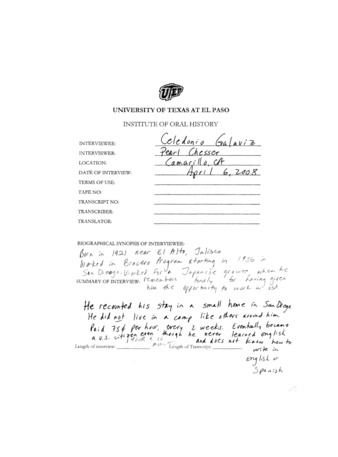 UTEP
UNIVERSITY OF TEXAS AT EL PASO
INSTITUTE OF ORAL HISTORY
INTERVIEWEE: Celedonio Galaviz
INTERVIEWER: Pearl Chesser
LOCATION: Camarillo, CA
DATE OF INTERVIEW: April 6, 2008
TERMS OF USE:
TAPE NO:
TRANSCRIPT NO:
TRANSCRIBER:
TRANSLATOR:
BIOGRAPHICAL SYNOPSIS OF INTERVIEWEE:
Born in 1921 near El Alto, Jalisco
Worked in Bracero Program starting in 1956 in
San Diego. Worked for a Japanese grower, whom he
SUMMARY OF INTERVIEW: remembers fondly for having given
him the opportunity to work in USA
He recounted his stay in a small home in San Diego
He did not live in a camp like others around him.
Paid 75¢ per hour, every 2 weeks. Eventually became
a U.S. citizen even though he never learned english
and does not know how to
Length of interview: Length of Transcript:
write in
english or
Spanish